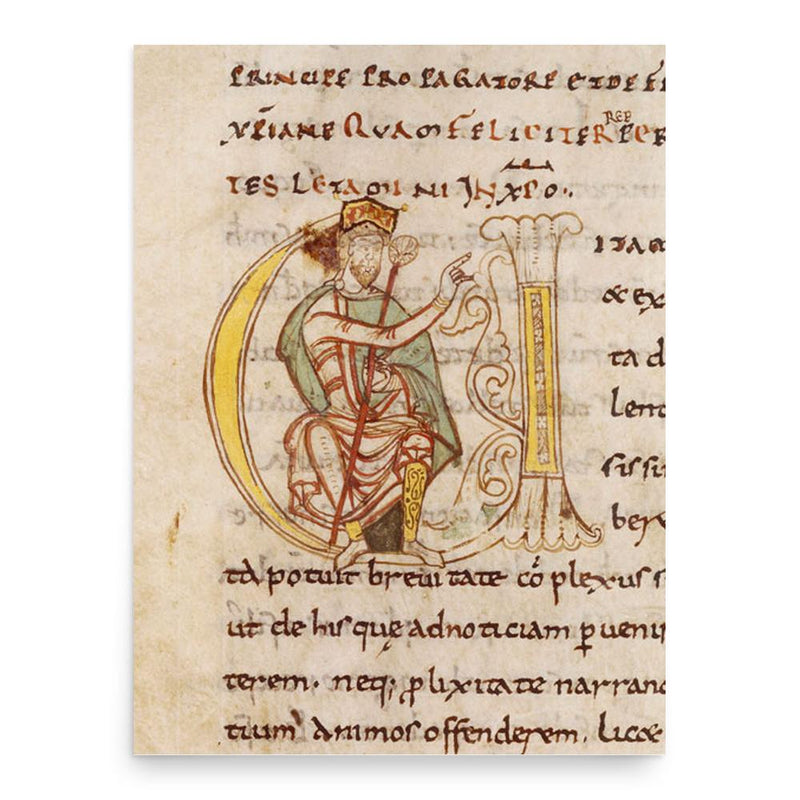 PRINCIPE PROPAGATORE ET DE
XPIANE QUAM FELICITER
TES LETAMINI IN XPO.
UITAM
& ex
ta d
lent
sissi
ber
ta potuit breuitate cōplexus s
ut de his quę ad noticiam puenir
terem. neq; plixitate narrand
tium animos offenderem. lic&